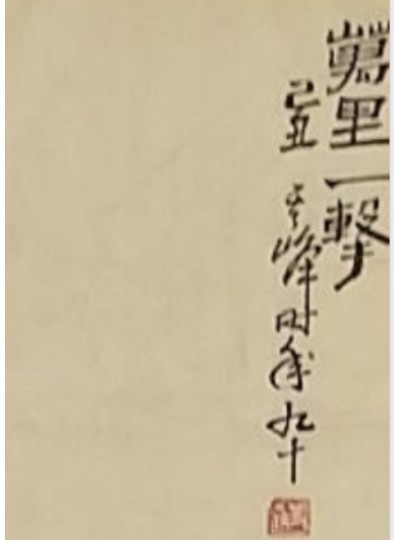 萬里一擊
己丑其峰时年九十